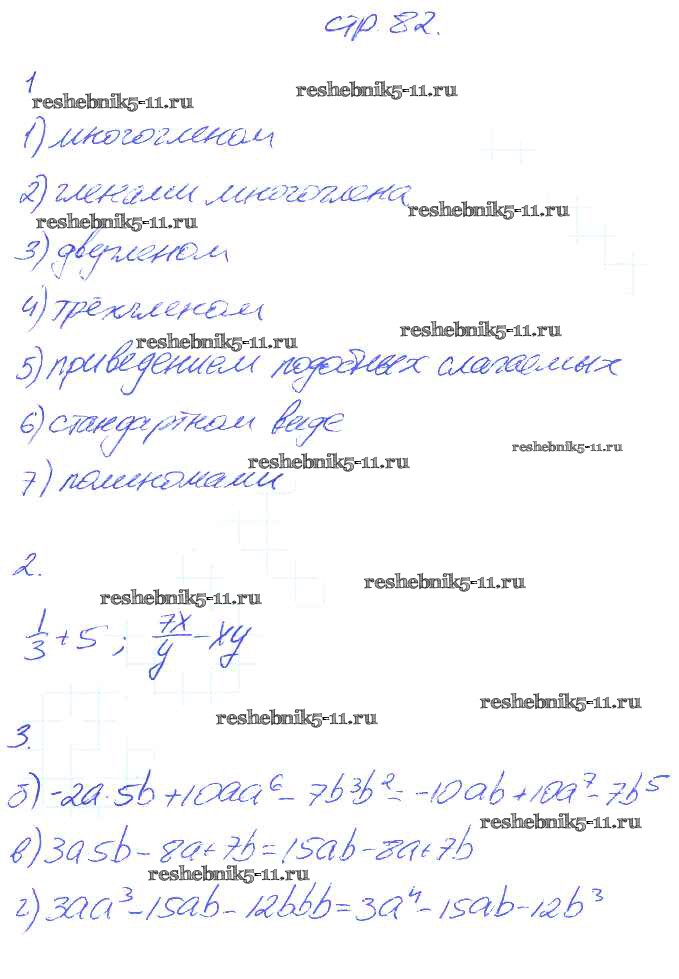 стр. 82.
1
reshebnik5-11.ru
reshebnik5-11.ru
1) многочленом
2) членами многочлена
reshebnik5-11.ru
reshebnik5-11.ru
3) двучленом
4) трёхчленом
reshebnik5-11.ru
reshebnik5-11.ru
5) приведением подобных слагаемых
6) стандартном виде
reshebnik5-11.ru
reshebnik5-11.ru
7) полиномами
2.
reshebnik5-11.ru
reshebnik5-11.ru
1/3 + 5 ; 7x/y - xy
reshebnik5-11.ru
reshebnik5-11.ru
3.
б) -2a·5b + 10aa⁶ - 7b³b² = -10ab + 10a⁷ - 7b⁵
reshebnik5-11.ru
в) 3a5b - 8a + 7b = 15ab - 8a + 7b
reshebnik5-11.ru
г) 3aa³ - 15ab - 12bbb = 3a⁴ - 15ab - 12b³